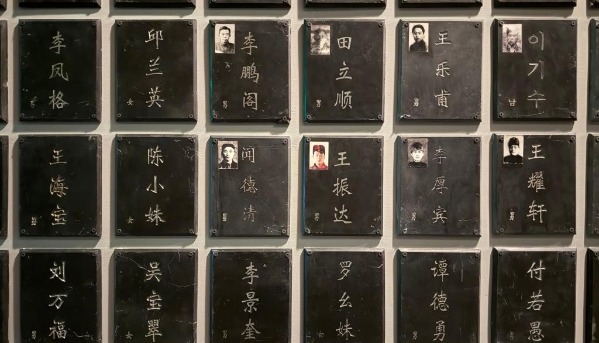 李凤格
邱兰英
女
李鹏阁
男
田立顺
男
王乐甫
男
이기수
남
王海宝
男
陈小妹
女
闻德清
男
王振达
男
李厚宾
男
王耀轩
男
刘万福
男
吴宝翠
女
李景奎
男
罗幺妹
女
谭德勇
男
付若愚
男